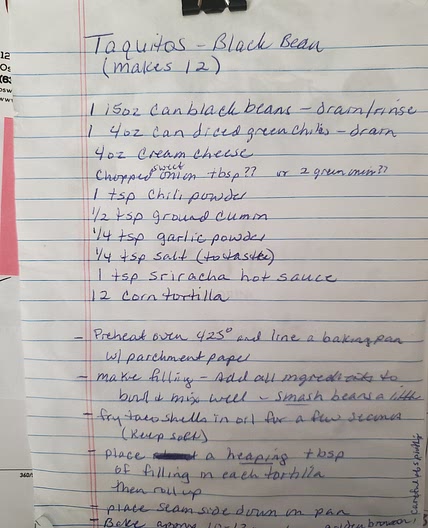 Taquitos - Black Bean
(makes 12)
1 15oz can black beans - drain/rinse
1 4oz can diced green chiles - drain
4oz cream cheese
Chopped sweet onion tbsp?? or 2 green onion??
1 tsp chili powder
1/2 tsp ground cumin
1/4 tsp garlic powder
1/4 tsp salt (to taste)
1 tsp sriracha hot sauce
12 corn tortilla
- Preheat oven 425° and line a baking pan
w/ parchment paper
- make filling - Add all ingredients to
bowl & mix well - smash beans a little
- fry taco shells in oil for a few seconds
(keep soft)
- place a heaping tbsp
of filling on each tortilla
then roll up
- place seam side down on pan
- Bake approx 10-12 golden brown